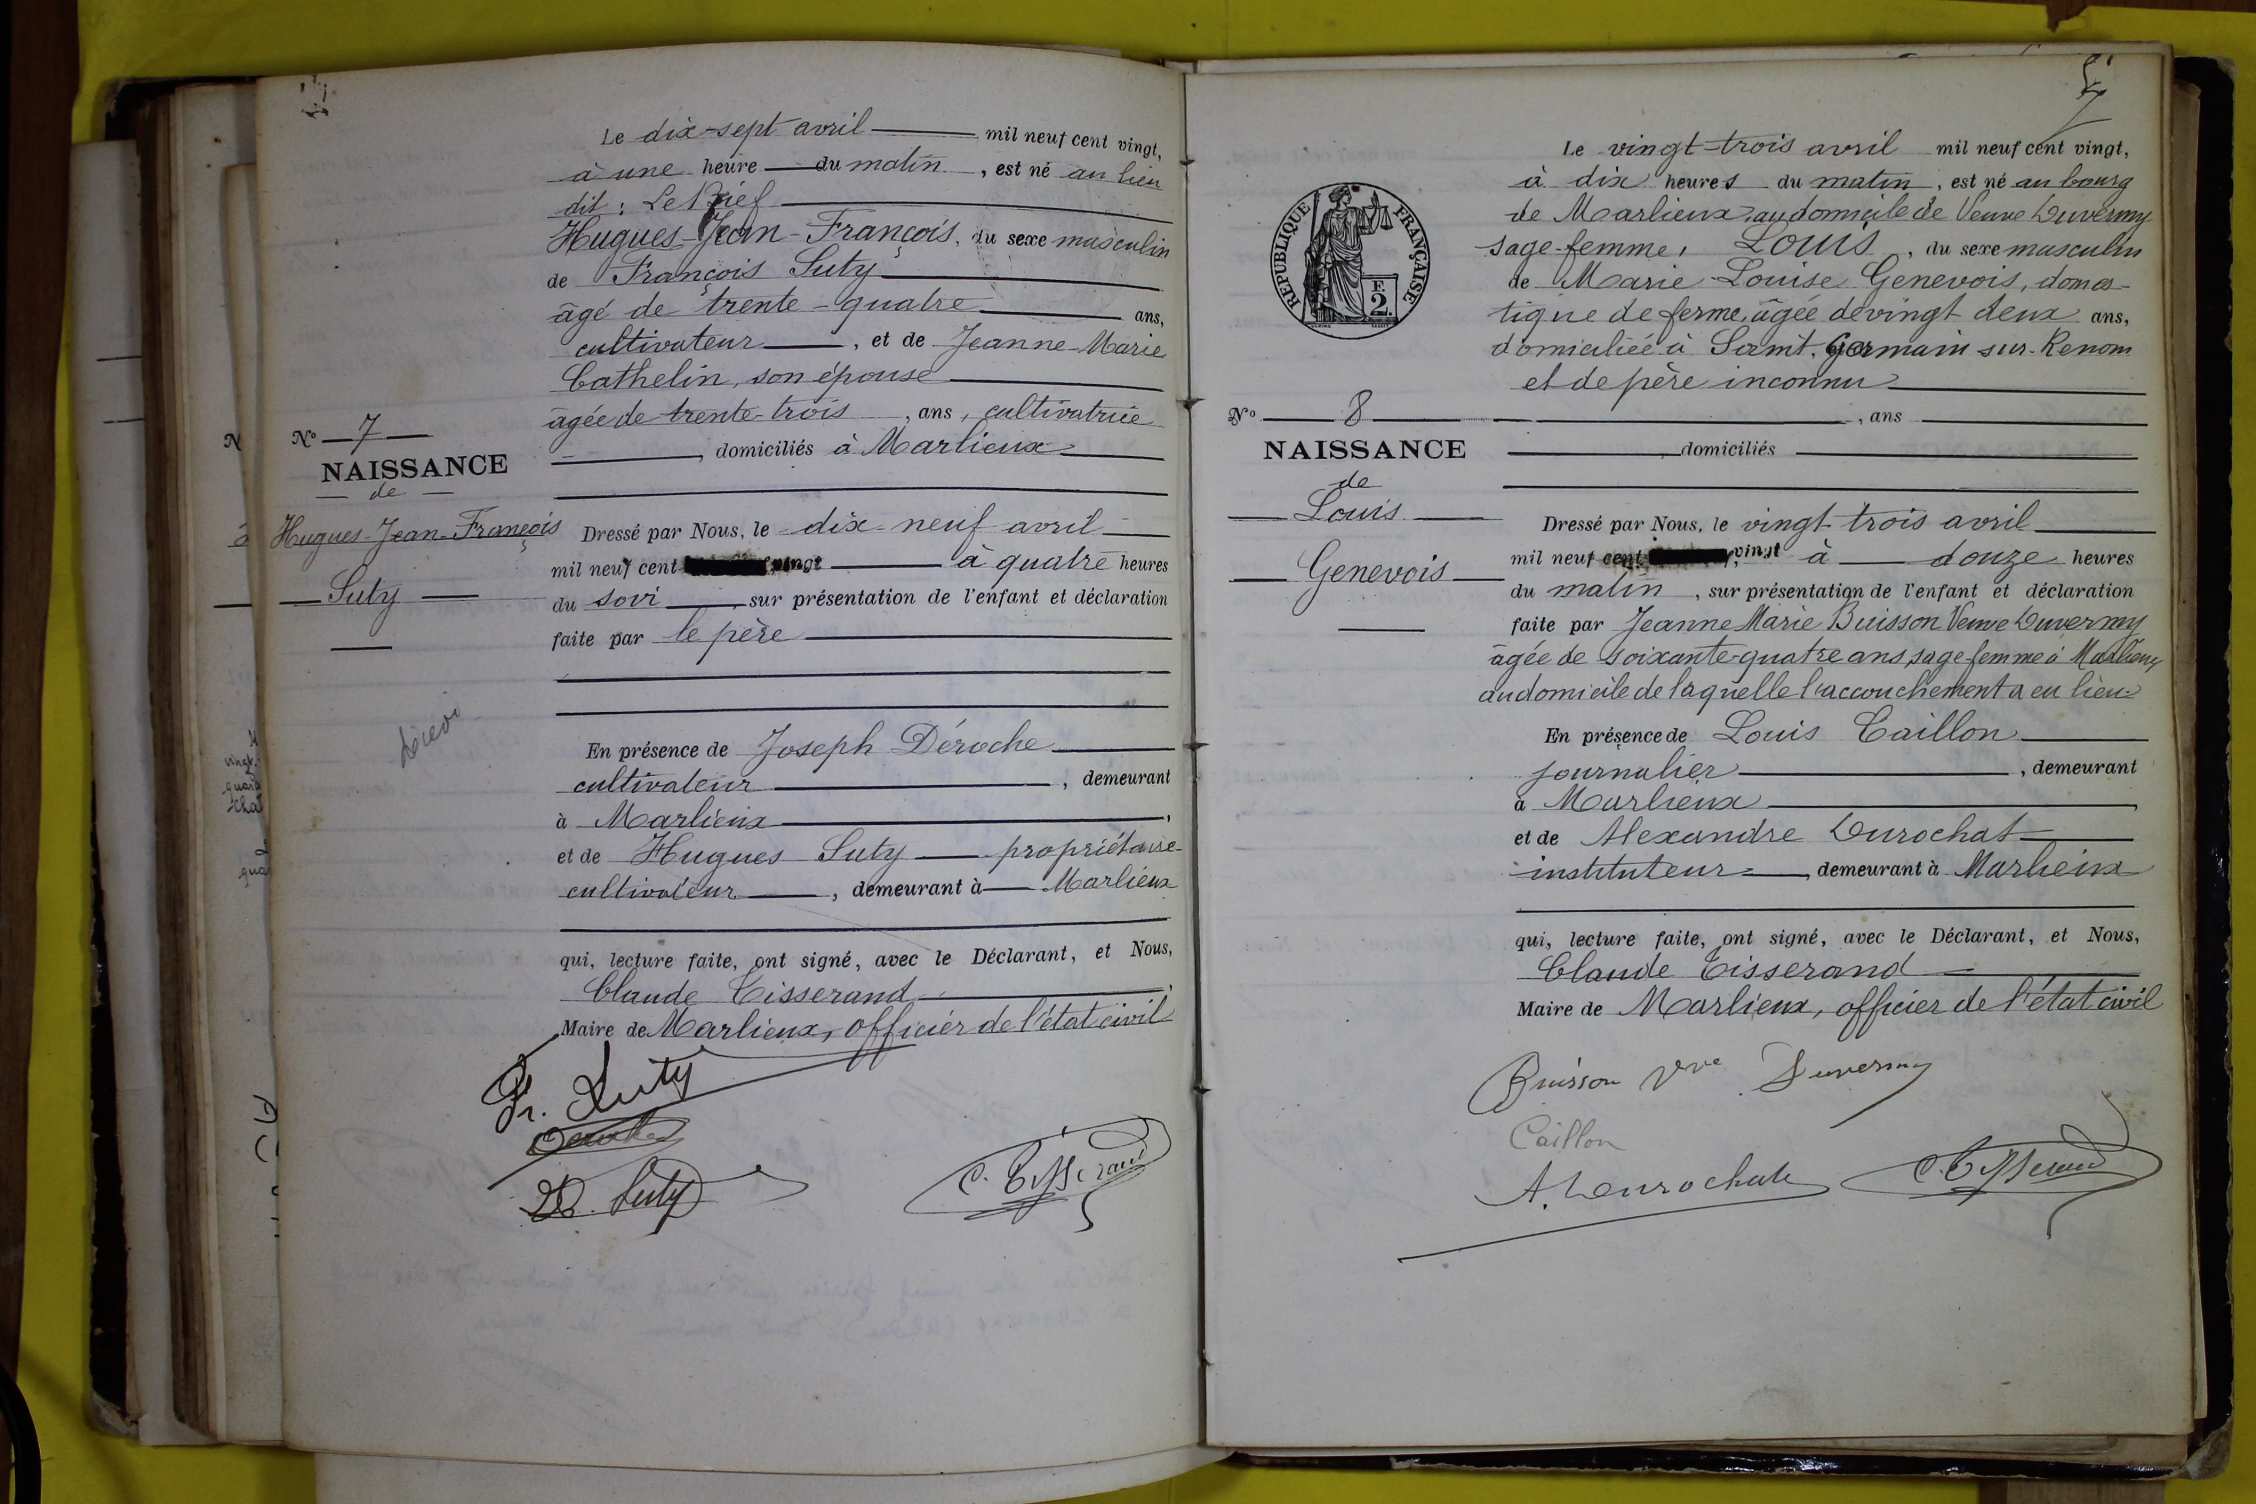 Le dix-sept avril mil neuf cent vingt,
à une heure du matin, est né au lieu
dit : Le Bief
Hugues-Jean-François, du sexe masculin
de François Suty
âgé de trente-quatre ans,
cultivateur, et de Jeanne-Marie
Cathelin, son épouse
âgée de trente-trois, ans, cultivatrice
, domiciliés à Marlieux
N° 7
NAISSANCE
de
Hugues-Jean-François
Suty
Dressé par Nous, le dix-neuf avril
mil neuf cent vingt à quatre heures
du soir, sur présentation de l'enfant et déclaration
faite par le père
En présence de Joseph Déroche
cultivateur, demeurant
à Marlieux,
et de Hugues Suty propriétaire
cultivateur, demeurant à Marlieux
qui, lecture faite, ont signé, avec le Déclarant, et Nous,
Claude Tisserand,
Maire de Marlieux, officier de l'état civil
Fr. Suty
H. Suty
C. Tisserand
Le vingt-trois avril mil neuf cent vingt,
à dix heures du matin, est né au bourg
de Marlieux, au domicile de Veuve Duvermy
sage-femme, Louis, du sexe masculin
de Marie-Louise Genevois, domes-
tique de ferme, âgée de vingt deux ans,
domiciliée à Saint-Germain-sur-Renom
et de père inconnu
, ans
domiciliés
RÉPUBLIQUE FRANÇAISE
F.
2.
N° 8
NAISSANCE
de
Louis
Genevois
Dressé par Nous, le vingt-trois avril
mil neuf cent vingt à douze heures
du matin, sur présentation de l'enfant et déclaration
faite par Jeanne Marie Buisson Veuve Duvermy
âgée de soixante-quatre ans, sage-femme à Marlieux
au domicile de laquelle l'accouchement a eu lieu
En présence de Louis Caillon
journalier, demeurant
à Marlieux,
et de Alexandre Durochat
instituteur, demeurant à Marlieux
qui, lecture faite, ont signé, avec le Déclarant, et Nous,
Claude Tisserand
Maire de Marlieux, officier de l'état civil
Buisson Vve Duvermy
Caillon
A. Durochat
C. Tisserand